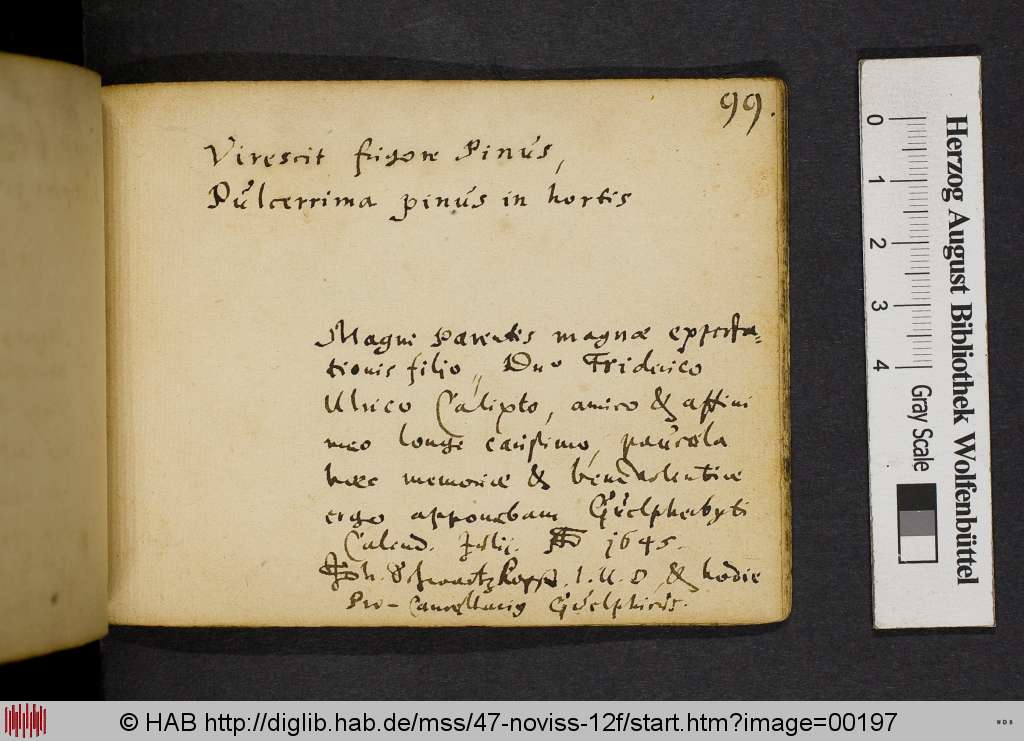 99.
Virescit frigore Pinus,
Pulcerrima pinus in hortis
Magni Parentis magnæ expecta-
tionis filio, Dno Friderico
Ulrico Calixto, amico & affini
meo longe carissimo, paucula
hæc memoriæ & benevolentiæ
ergo apponebam Guelpherbyti
Calend. Julij. 1645.
Joh. Schwartzkopff. I. U. D. & hodie
Pro-Cancellarius Guelphicus.
0 1 2 3 4
Gray Scale
Herzog August Bibliothek Wolfenbüttel
© HAB http://diglib.hab.de/mss/47-noviss-12f/start.htm?image=00197